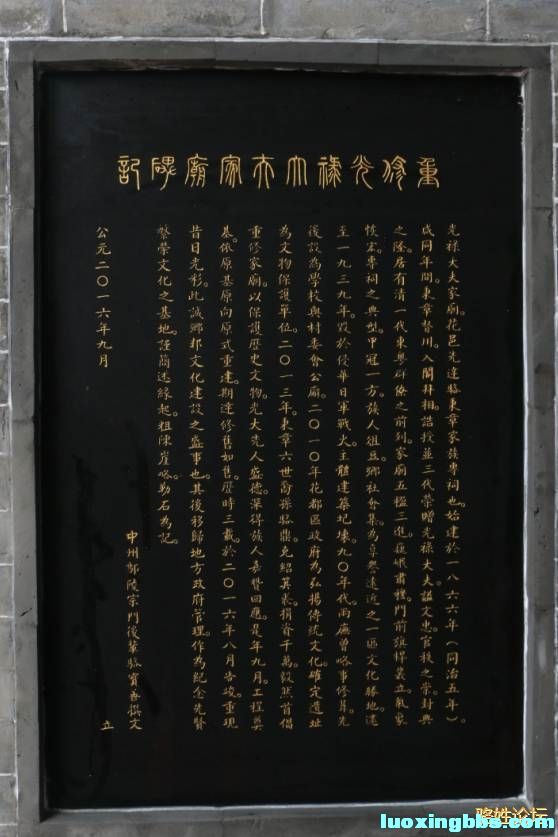 重修光祿大夫家廟碑記
光祿大夫家廟。花邑先達駱秉章家族專祠也。始建於一八六六年（同治五年）。
咸同年間。秉章督川。入閣拜相。誥授並三代榮贈光祿大夫。諡文忠。官秩之崇。封典
之隆。居有清一代東粵群僚之前列。家廟五楹三進。巍峨肅穆。門前旗桿叢立。氣象
恢宏。專祠之典型。甲冠一方。族人俎豆。鄉社會集。為享譽遠近之一區文化勝地。遺
至一九三九年。毀於侵華日軍戰火。主體建築圮壞。九〇年代。兩廡曾略事修葺。先
後設為學校與村委會公廨。二〇一〇年花都區政府為弘揚傳統文化。確定遺址
為文物保護單位。二〇一三年。秉章六世裔孫駱鼎。克紹箕裘。捐資千萬。毅然首倡
重修家廟。以保護歷史文物。光大先人盛德。深得族人喜贊回應。是年九月。工程奠
基。依原基原向原式重建。期達修舊如舊。歷時三載。於二〇一六年八月告竣。重現
昔日光彩。此誠鄉邦文化建設之盛事也。其後移歸地方政府管理。作為紀念先賢
繁榮文化之基地。謹簡述緣起。粗陳崖略。勒石為記。
中州鄢陵宗門後輩駱寶善撰文
公元二〇一六年九月
立
駱姓论坛
luoxingbbs.com